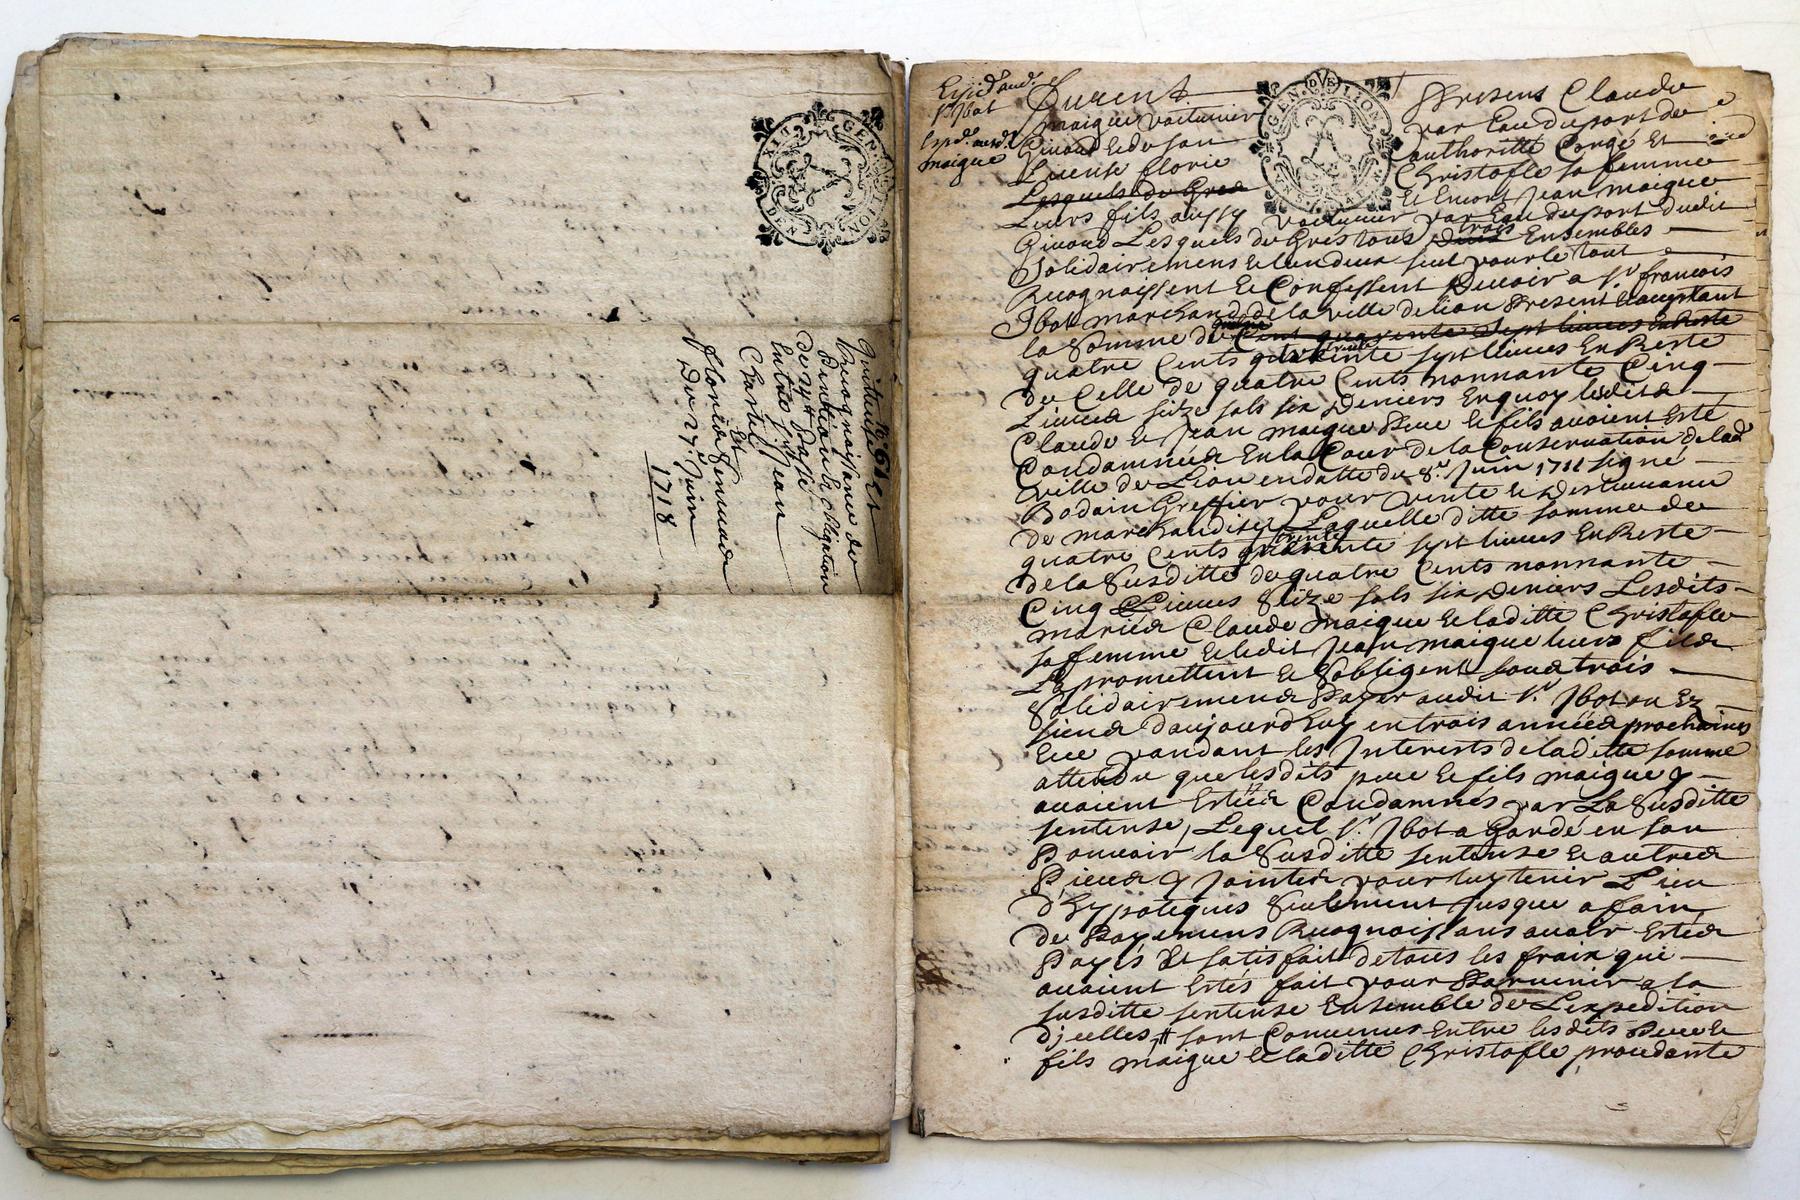 GEN. DE LION
Quittance
Recognoissance de
pention & obligation
Entre Sr. Jean
Chastel
Et
Florie
Du 27e. Juin
1718
Expd. aud.
Sr Jbot
Expd. ausd.
maigue
GEN. DE LION
Furent Presens Claude
maigue voiturier par Eau du port de
Givord & de son authoritté Congé Et
License florie Christofle sa femme
Lesquels de Gred Et Encor Jean maigue
Leurs fils aussy voiturier par Eau du port dudit
Givord Lesquels de Gres tous deux trois Ensembles
Solidairemens & lun deux seul pour le tout
Recognoissent & Confessent Devoir a Sr. francois
Jbot marchand de la ville de lion Present & acceptant
la Somme de Cent quarente Sept livres En Reste
quatre Cents trente sept livres En Reste
de Celle de quatre Cents nonnante Cinq
Livres seize sols six Deniers En quoy lesdits
Claude & Jean maigue Pere & fils avoient Esté
Condamnés En la Cour de la Conservation de lad.
ville de Lion en datte du 8e. Juin 1711 signé
Bodain Greffier pour vente &
de marchandises Laquelle ditte somme de
quatre Cents trente sept livres En Reste
de la Susditte de quatre Cents nonnante
Cinq Livres Seize sols six Deniers Lesdits
mariés Claude maigue & laditte Christofle
sa femme & ledit Jean maigue leurs fils
promettent & sobligent tous trois
Solidairemens Payer audit Sr. Jbot ou Es
siens daujourdhuy en trois années prochaines
Et ce pandant les Interests de laditte somme
attendu que lesdits pere & fils maigue y
avoient Estés Condamnés par La Susditte
sentense, Lequel Sr. Jbot a Gardé en son
Pouvoir la Susditte sentense & autres
Pieces y Jointes pour luy tenir Lieu
d'hypoteques Seulement Jusque a fain
de Payemens Recognoissans avoir Estés
Payés & satisfait de tous les fraix qui
avoient Estés fait pour Parvenir a la
susditte sentense Ensemble de L'expedition
dicelles, sont Convenus Entre lesdits Pere &
fils maigue & laditte Christofle, procedante